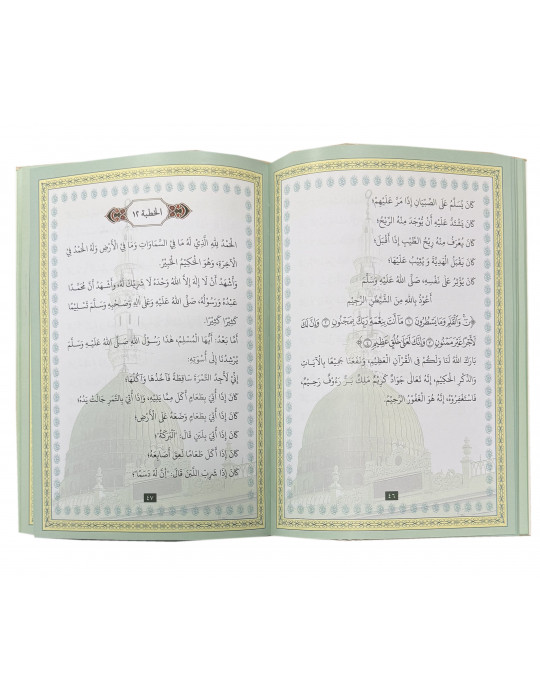 كَانَ يُسَلِّمُ عَلَى الصِّبْيَانِ إِذَا مَرَّ عَلَيْهِمْ؛
كَانَ يَشْتَدُّ عَلَيْهِ أَنْ يُوجَدَ مِنْهُ الرِّيْحُ؛
كَانَ يُعْرَفُ مِنْهُ رِيْحُ الطِّيْبِ إِذَا أَقْبَلَ؛
كَانَ يَقْبَلُ الْهَدِيَّةَ وَ يُثِيْبُ عَلَيْهَا؛
كَانَ يُؤْثِرُ عَلَى نَفْسِهِ، صَلَّى اللهُ عَلَيْهِ وَسَلَّمَ
أَعُوْذُ بِاللهِ مِنَ الشَّيْطٰنِ الرَّجِيْمِ
﴿نٓ وَالْقَلَمِ وَمَا يَسْطُرُونَ ۝١ مَآ أَنتَ بِنِعْمَةِ رَبِّكَ بِمَجْنُونٍ ۝٢ وَإِنَّ لَكَ
لَأَجْرًا غَيْرَ مَمْنُونٍ ۝٣ وَإِنَّكَ لَعَلَىٰ خُلُقٍ عَظِيمٍ ۝٤﴾
بَارَكَ اللهُ لَنَا وَلَكُمْ فِي الْقُرْآنِ الْعَظِيْمِ، وَنَفَعَنَا جَمِيْعًا بِالْآيَاتِ
وَالذِّكْرِ الْحَكِيْمِ، إِنَّهُ تَعَالَى جَوَادٌ كَرِيْمٌ مَلِكٌ بَرٌّ رَءُوْفٌ رَحِيْمٌ،
فَاسْتَغْفِرُوْهُ إِنَّهُ هُوَ الْغَفُوْرُ الرَّحِيْمُ.
٤٦
الخطبة ١٢
اَلْحَمْدُ لِلّٰهِ الَّذِيْ لَهُ مَا فِي السَّمَاوَاتِ وَمَا فِي الْأَرْضِ وَلَهُ الْحَمْدُ فِي
الْآخِرَةِ، وَهُوَ الْحَكِيْمُ الْخَبِيْرُ.
وَأَشْهَدُ أَنْ لَا إِلٰهَ إِلَّا اللهُ وَحْدَهُ لَا شَرِيْكَ لَهُ، وَأَشْهَدُ أَنَّ مُحَمَّدًا
عَبْدُهُ وَرَسُوْلُهُ، صَلَّى اللهُ عَلَيْهِ وَعَلَى آلِهِ وَصَاحِبِهِ وَسَلَّمَ تَسْلِيْمًا
كَثِيْرًا كَثِيْرًا.
أَمَّا بَعْدُ: أَيُّهَا الْمُسْلِمُ، هَذَا رَسُوْلُ اللهِ صَلَّى اللهُ عَلَيْهِ وَسَلَّمَ
يُرْشِدُنَا إِلَى أُسْوَتِهِ:
إِنِّيْ لَأَجِدُ التَّمْرَةَ سَاقِطَةً فَآخُذُهَا وَآكُلُهَا؛
كَانَ إِذَا أُتِيَ بِطَعَامٍ أَكَلَ مِمَّا يَلِيْهِ، وَإِذَا أُتِيَ بِالتَّمْرِ جَالَتْ يَدُهُ؛
كَانَ إِذَا أُتِيَ بِطَعَامٍ وَضَعَهُ عَلَى الْأَرْضِ؛
كَانَ إِذَا أُتِيَ بِلَبَنٍ قَالَ: "الْبَرَكَةُ"؛
كَانَ إِذَا أَكَلَ طَعَامًا لَعِقَ أَصَابِعَهُ؛
كَانَ إِذَا شَرِبَ اللَّبَنَ قَالَ: "إِنَّ لَهُ دَسَمًا"؛
٤٧